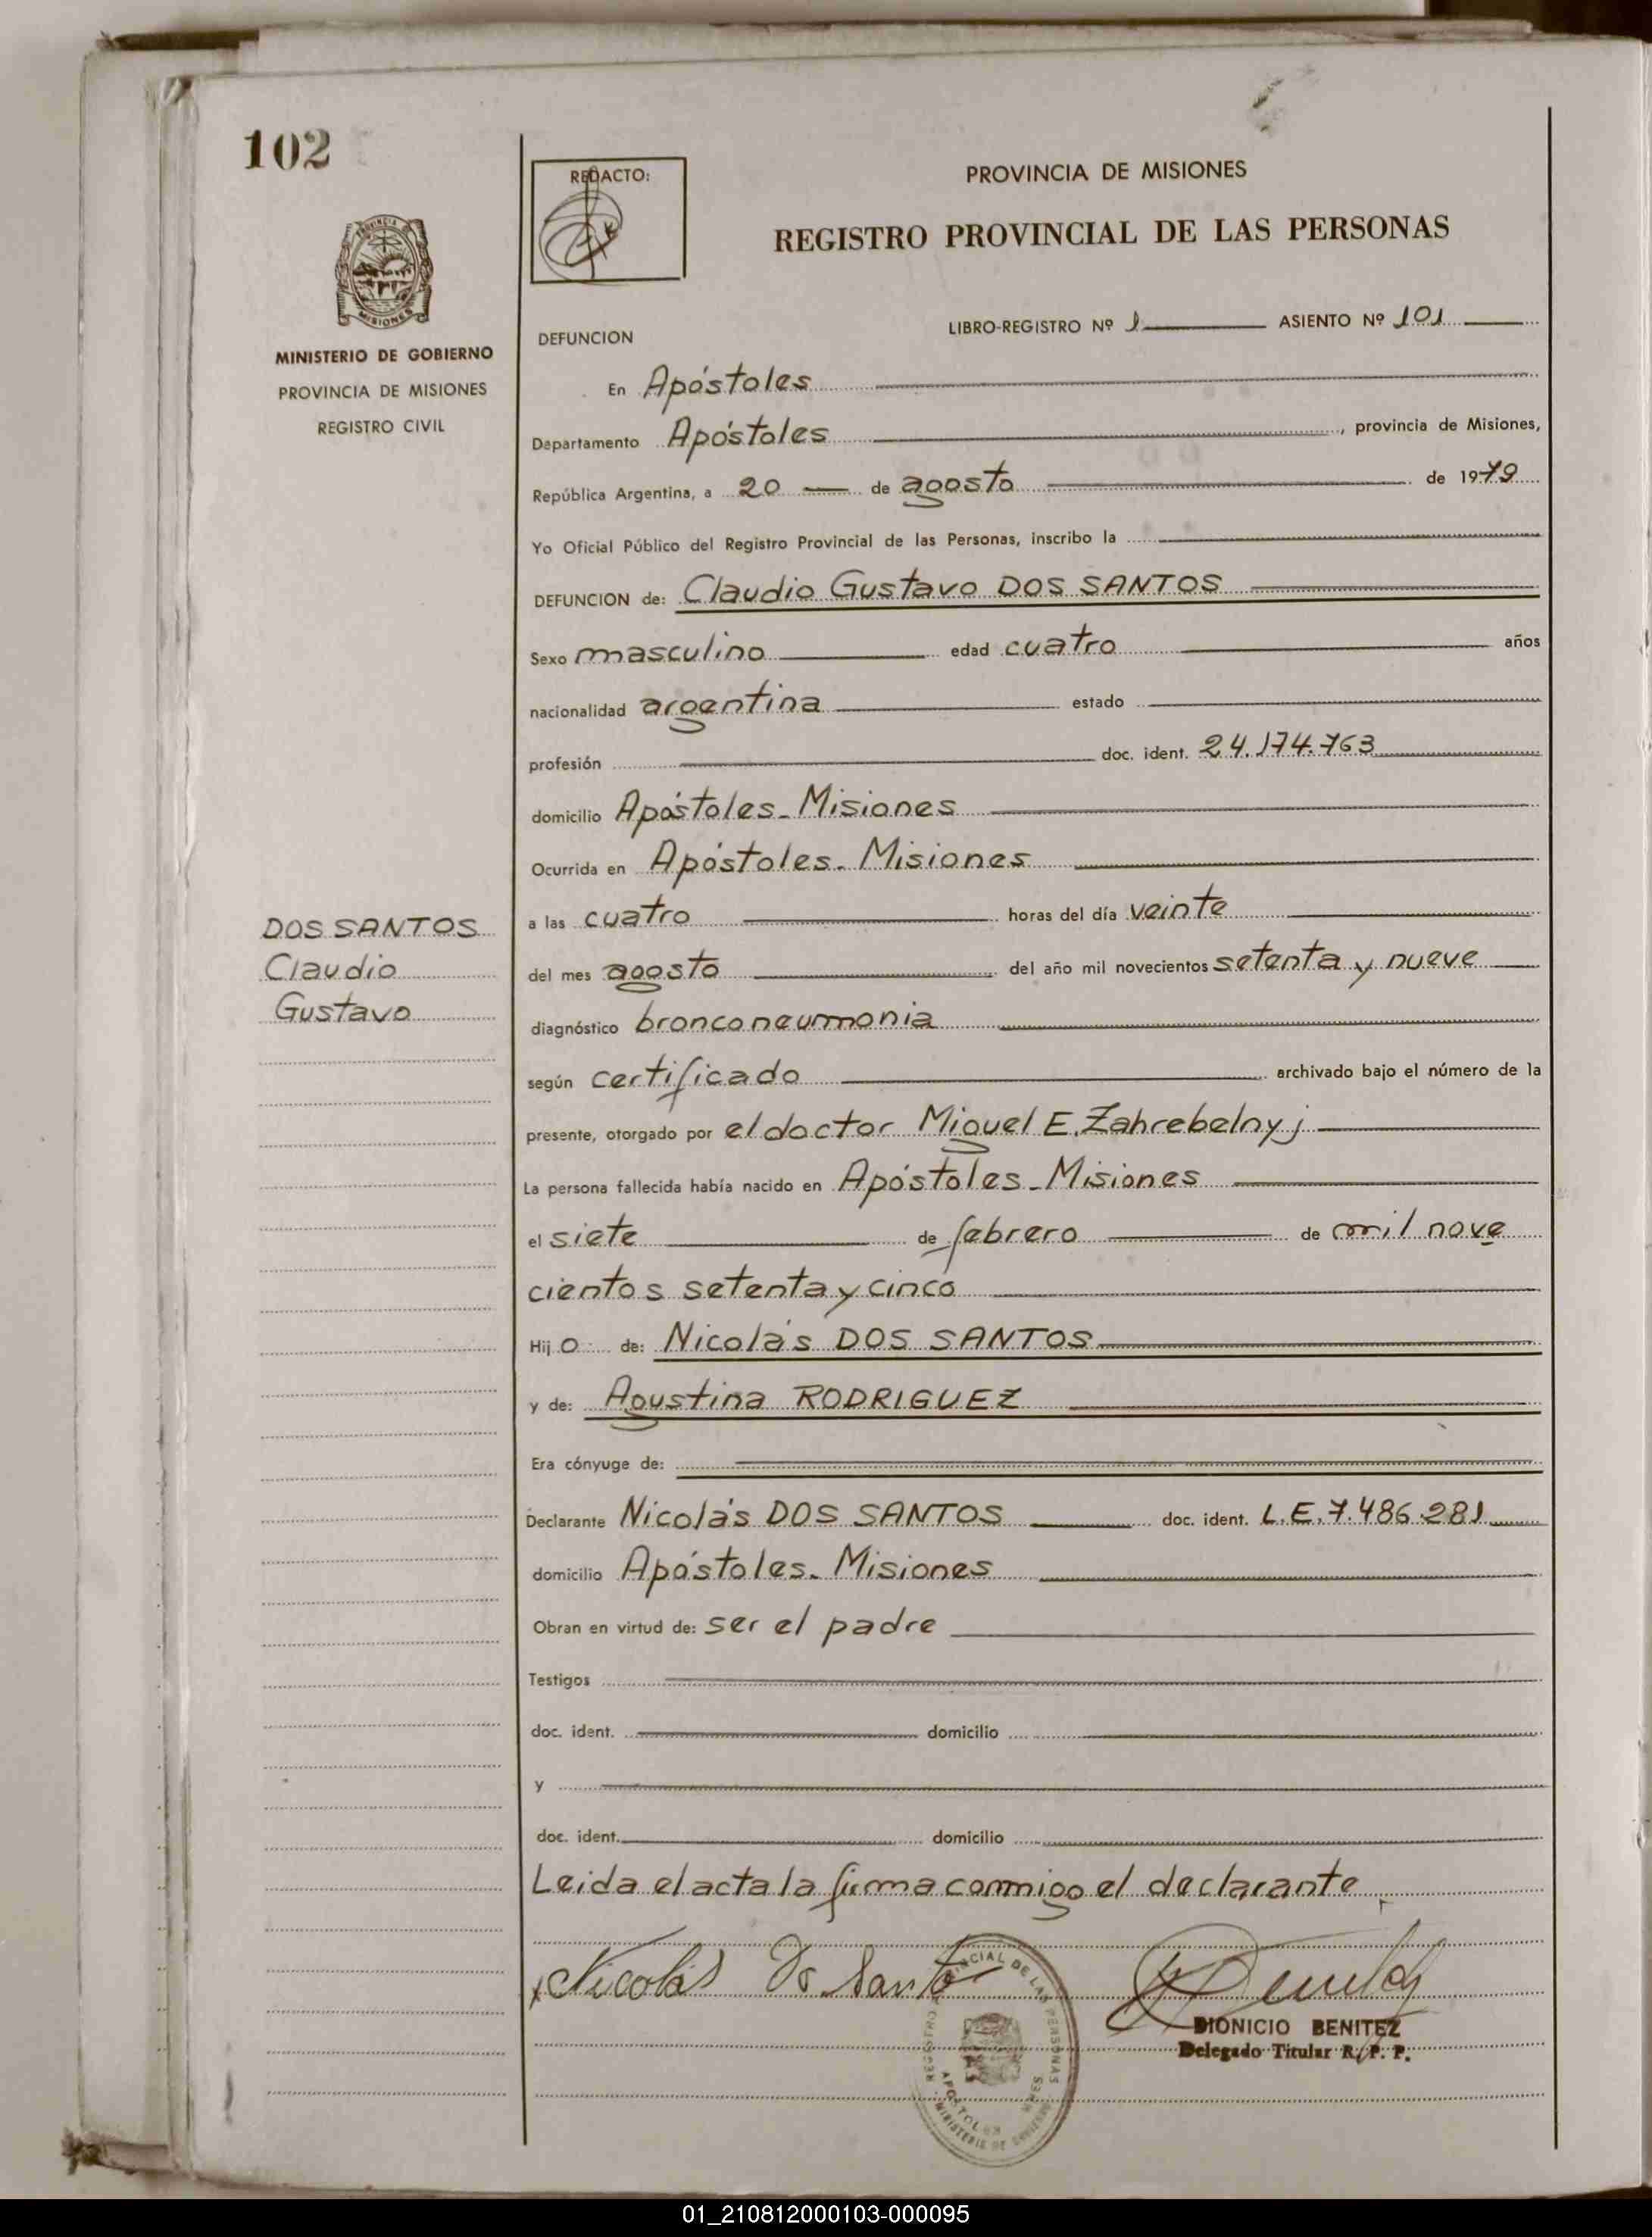 102
PROVINCIA DE MISIONES
MINISTERIO DE GOBIERNO
PROVINCIA DE MISIONES
REGISTRO CIVIL
REDACTO:
PROVINCIA DE MISIONES
REGISTRO PROVINCIAL DE LAS PERSONAS
DEFUNCION LIBRO-REGISTRO Nº 1 ASIENTO Nº 101
En Apóstoles
Departamento Apóstoles, provincia de Misiones,
República Argentina, a 20 de agosto de 1979
Yo Oficial Público del Registro Provincial de las Personas, inscribo la
DEFUNCION de: Claudio Gustavo DOS SANTOS
Sexo masculino edad cuatro años
nacionalidad argentina estado
profesión doc. ident. 24.174.763
domicilio Apóstoles - Misiones
Ocurrida en Apóstoles - Misiones
DOS SANTOS
Claudio
Gustavo
a las cuatro horas del día veinte
del mes agosto del año mil novecientos setenta y nueve
diagnóstico bronconeumonia
según certificado archivado bajo el número de la
presente, otorgado por el doctor Miguel E. Zahrebelnyj
La persona fallecida había nacido en Apóstoles - Misiones
el siete de febrero de mil nove
cientos setenta y cinco
Hijo de: Nicolás DOS SANTOS
y de: Agustina RODRIGUEZ
Era cónyuge de:
Declarante Nicolás DOS SANTOS doc. ident. L.E.7.486.281
domicilio Apóstoles - Misiones
Obran en virtud de: ser el padre
Testigos
doc. ident. domicilio
y
doc. ident. domicilio
Leida el acta la firma conmigo el declarante
x Nicolás Do Santo
REGISTRO PROVINCIAL DE LAS PERSONAS
APOSTOLES
MINISTERIO DE GOBIERNO
DIONICIO BENITEZ
Delegado Titular R. P. P.
01_210812000103-000095